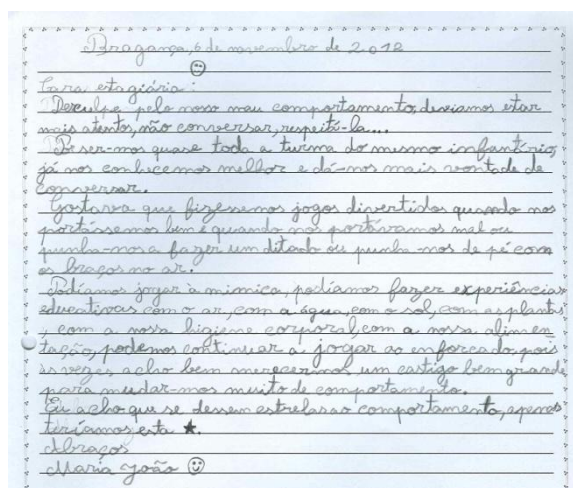 Bragança, 6 de novembro de 2012
Cara estagiária:
Desculpe pelo nosso mau comportamento, devíamos estar
mais atentos, não conversar, respeitá-la...
Por ser-mos quase toda a turma do mesmo infantário,
já nos conhecemos melhor e dá-nos mais vontade de
conversar.
Gostava que fizéssemos jogos divertidos quando nos
portássemos bem e quando nos portávamos mal ou
punha-nos a fazer um ditado ou punha-mos de pé com
os braços no ar.
Podíamos jogar à mimica, podíamos fazer experiências
educativas com o ar, com a água, com o sol, com as plantas
, com a nossa higiene corporal, com a nossa alimen
tação, podemos continuar a jogar ao enforcado, pois
às vezes acho bem merecermos um castigo bem grande
para mudar-mos muito de comportamento.
Eu acho que se dessem estrelas ao comportamento, apenas
teríamos esta ★.
Abraços
Maria João ☺